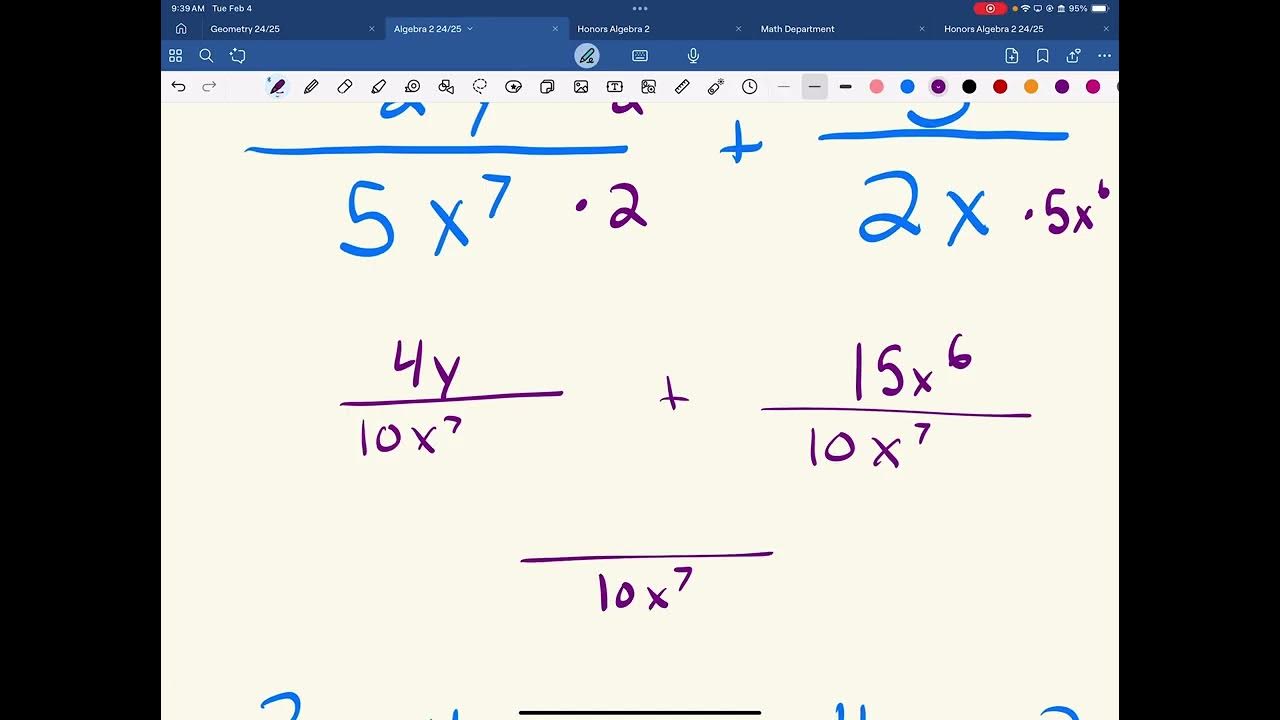 9:39 AM Tue Feb 4 95%
Geometry 24/25 Algebra 2 24/25 Honors Algebra 2 Math Department Honors Algebra 2 24/25
+
5x⁷ · 2 2x · 5x⁶
4y + 15x⁶
10x⁷ 10x⁷
10x⁷